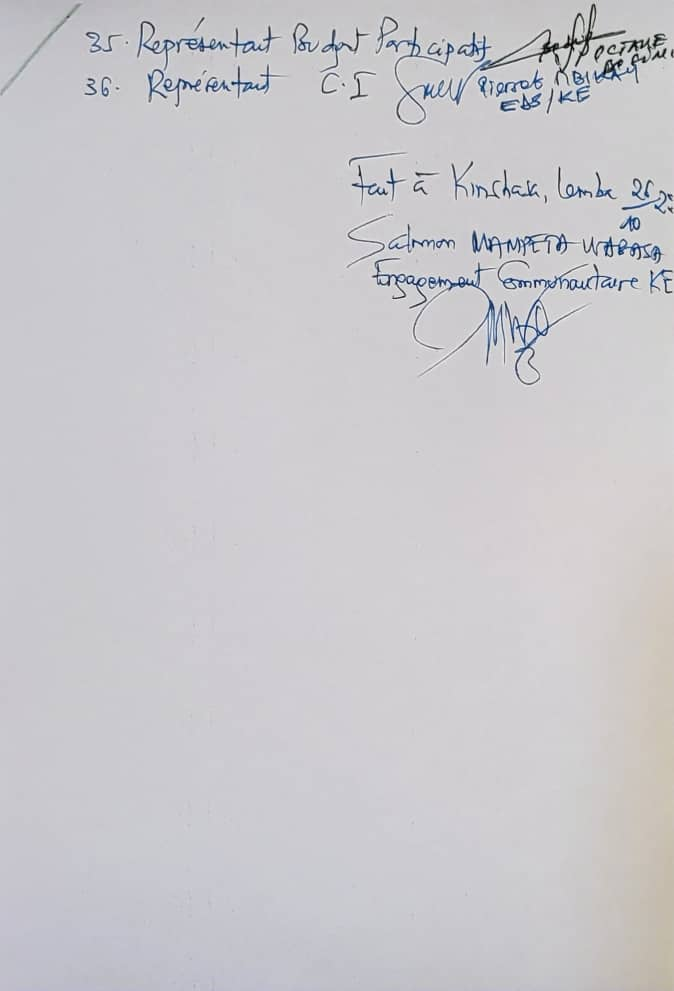 35. Représentant Budget Participatif OCTAVE
36. Représentant C.I Pierrot
EDS/KE
Fait à Kinshasa, Lemba 26
10
Salomon MAMPETA WABASA
Engagement Communautaire KE